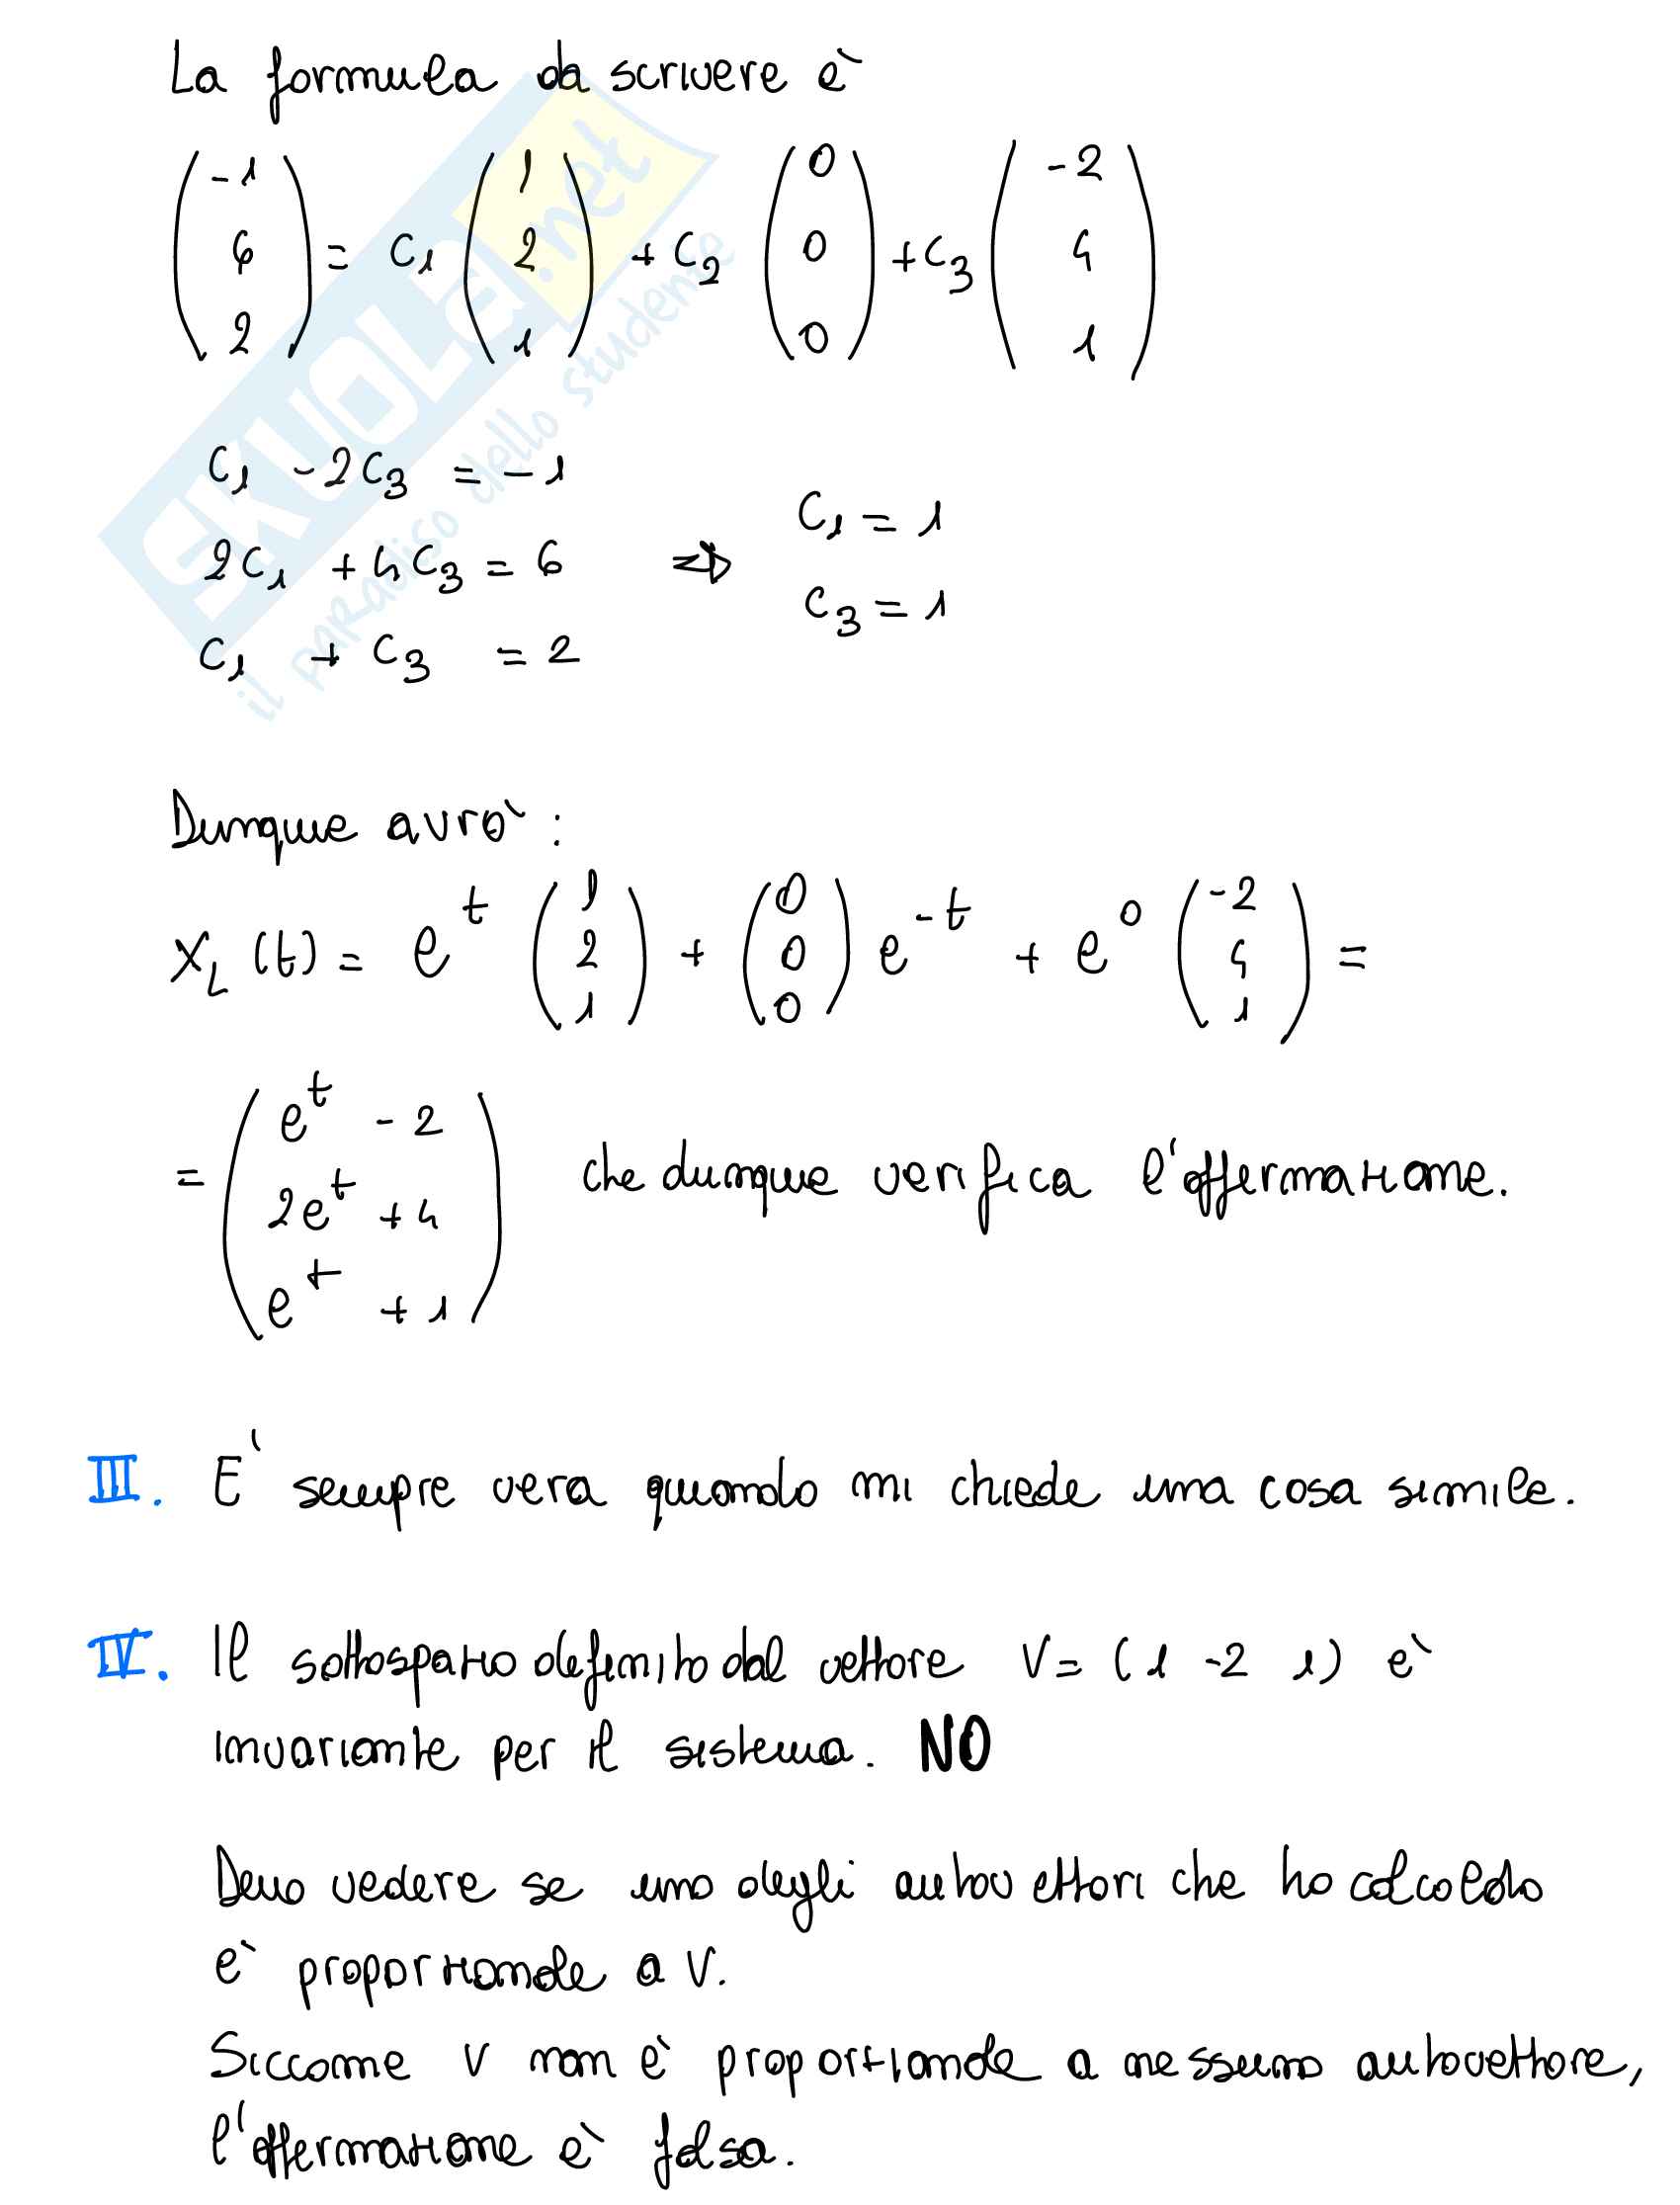 La formula da scrivere è
(-1 6 2) = C1 (1 2 1) + C2 (0 0 0) + C3 (-2 4 1)
C1 - 2C3 = -1
2C1 + 4C3 = 6 ⇒ C1 = 1
C1 + C3 = 2 C3 = 1
Dunque avrò:
XL (t) = e^t (1 2 1) + (0 0 0) e^-t + e^0 (-2 4 1) =
= (e^t - 2 2e^t + 4 e^t + 1) che dunque verifica l'affermazione.
III. E' sempre vera quando mi chiede una cosa simile.
IV. Il sottospazio definito dal vettore V = (1 -2 1) è
invariante per il sistema. NO
Devo vedere se uno degli autovettori che ho calcolato
è proporzionale a V.
Siccome V non è proporzionale a nessuno autovettore,
l'affermazione è falsa.
SKUOLA.net
il paradiso dello studente